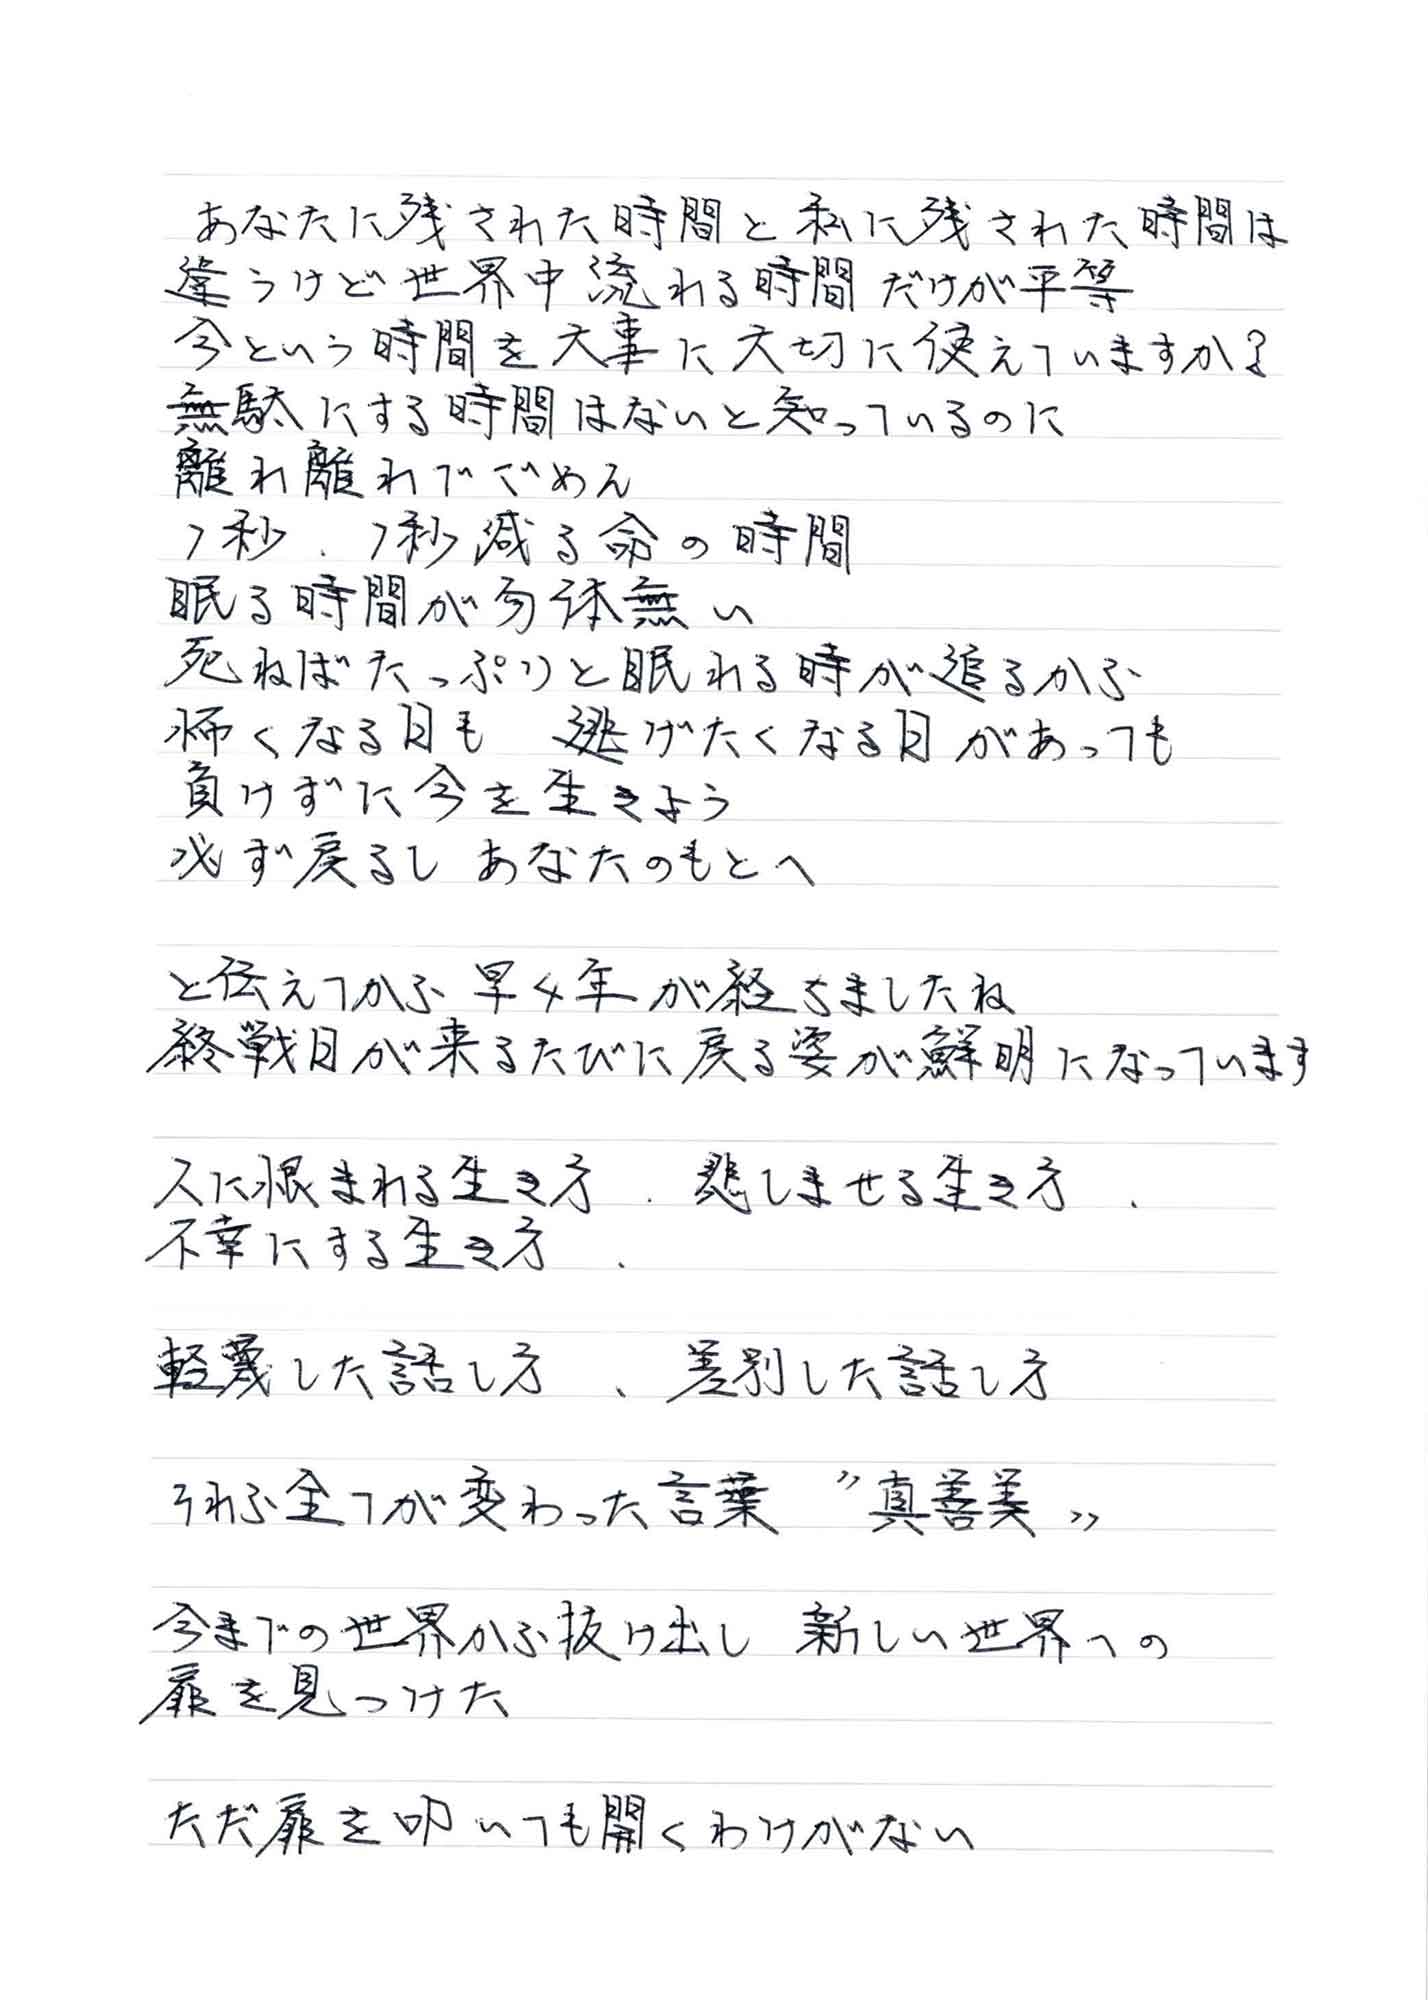 あなたに残された時間と私に残された時間は
違うけど世界中流れる時間だけが平等
今という時間を大事に大切に使えていますか?
無駄にする時間はないと知っているのに
離れ離れでごめん
1秒、1秒減る命の時間
眠る時間が勿体無い
死ねばたっぷりと眠れる時が迫るから
怖くなる日も 逃げたくなる日があっても
負けずに今を生きよう
必ず戻るし あなたのもとへ
と伝えてから早4年が経ちましたね
終戦日が来るたびに戻る姿が鮮明になっています
人に恨まれる生き方、悲しませる生き方、
不幸にする生き方、
軽蔑した話し方、差別した話し方
それら全てが変わった言葉 〝真善美〟
今までの世界から抜け出し 新しい世界への
扉を見つけた
ただ扉を叩いても開くわけがない